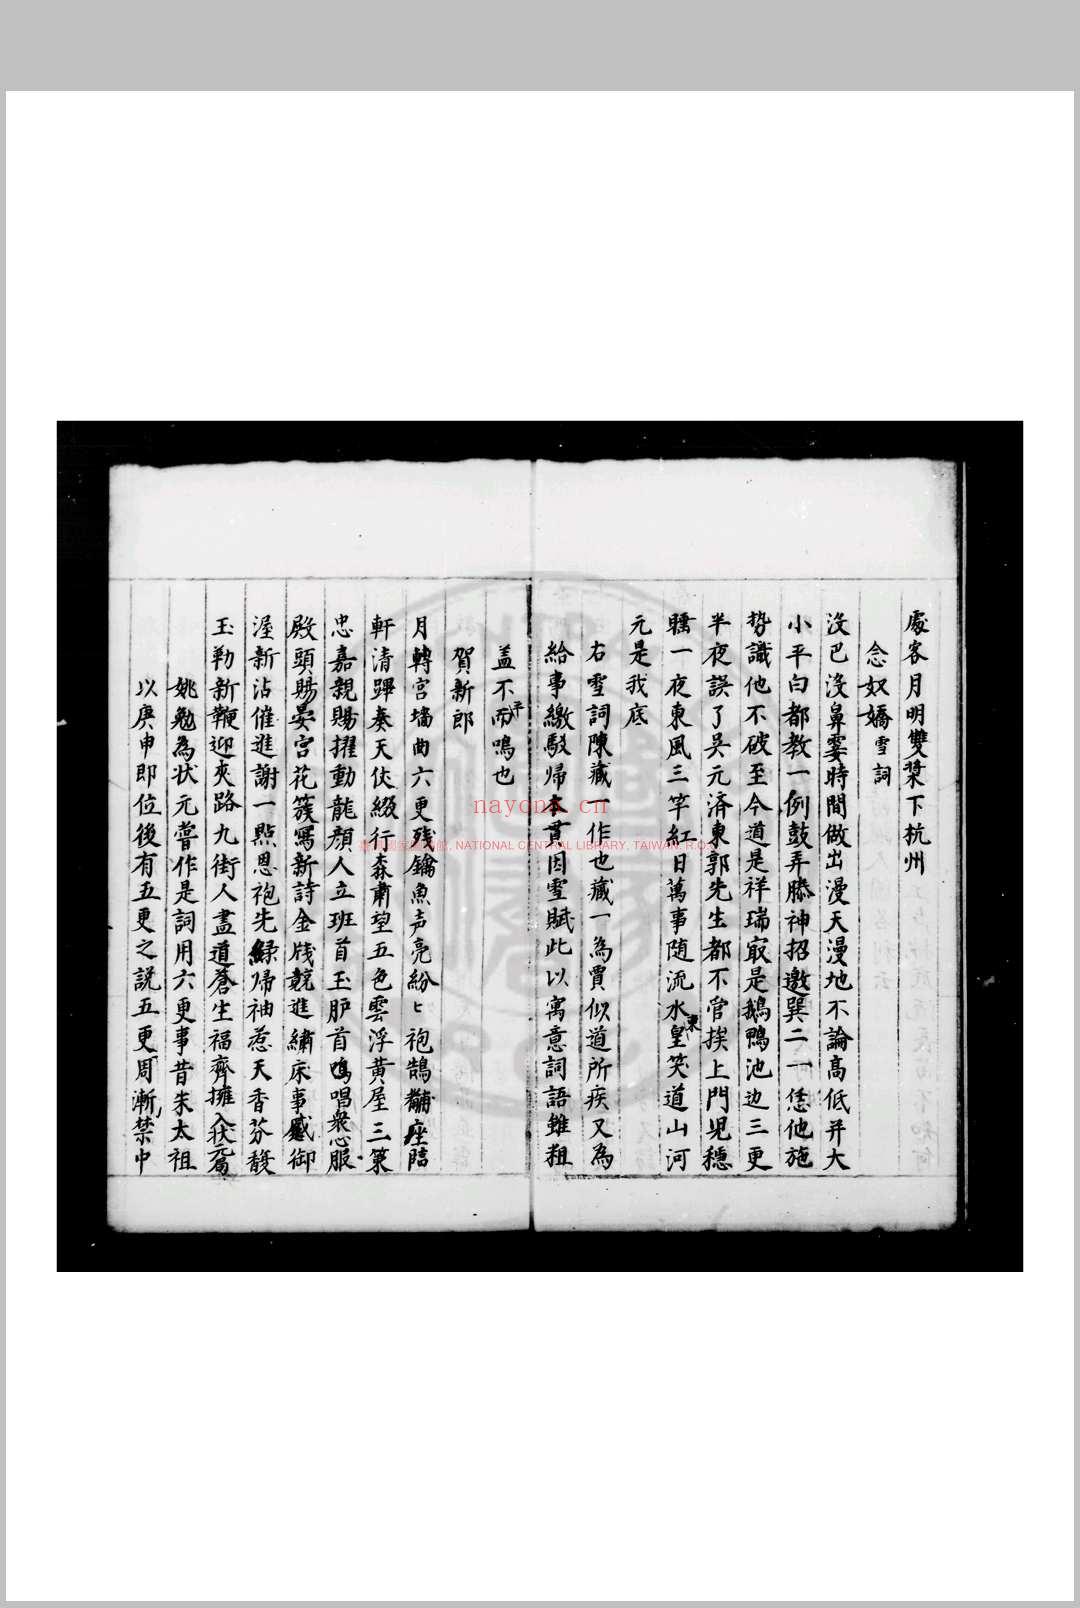 處客月明雙槳下杭州
念奴嬌 雪詞
沒巴沒鼻霎時間做出漫天漫地不論高低并大
小平白都教一例鼓弄滕神招邀巽二一恁他施
势識他不破至今道是祥瑞㝡是鵝鴨池边三更
半夜誤了吳元済東郭先生都不管挨上門児穩
睡一夜東風三竿紅日萬事随流水東皇笑道山河
元是我底
右雪詞陳藏一作也藏一為賈似道所疾又為
給事繳駁帰本貫因雪賦此以寓意詞語雖粗
盖不平而鳴也
賀新郎
月轉宮墻曲六更殘鑰魚声亮紛々袍鵠黼座臨
軒清蹕奏天仗綴行森肅望五色雲浮黃屋三策
忠嘉親賜擢動龍顔人立班首玉胪首鳴唱衆心服
殿頭賜晏宮花簇寫新詩金牋競進繡床事感御
渥新沾催進謝一㸃恩袍先綠帰袖惹天香芬馥
玉勒新鞭迎夾路九街人盡道蒼生福齊擁入状元
姚勉為状元嘗作是詞用六更事昔朱太祖
以庚申即位後有五更之説五更周漸禁中
nayona.cn
臺灣國家圖書館, NATIONAL CENTRAL LIBRARY, TAIWAN, R.O.C